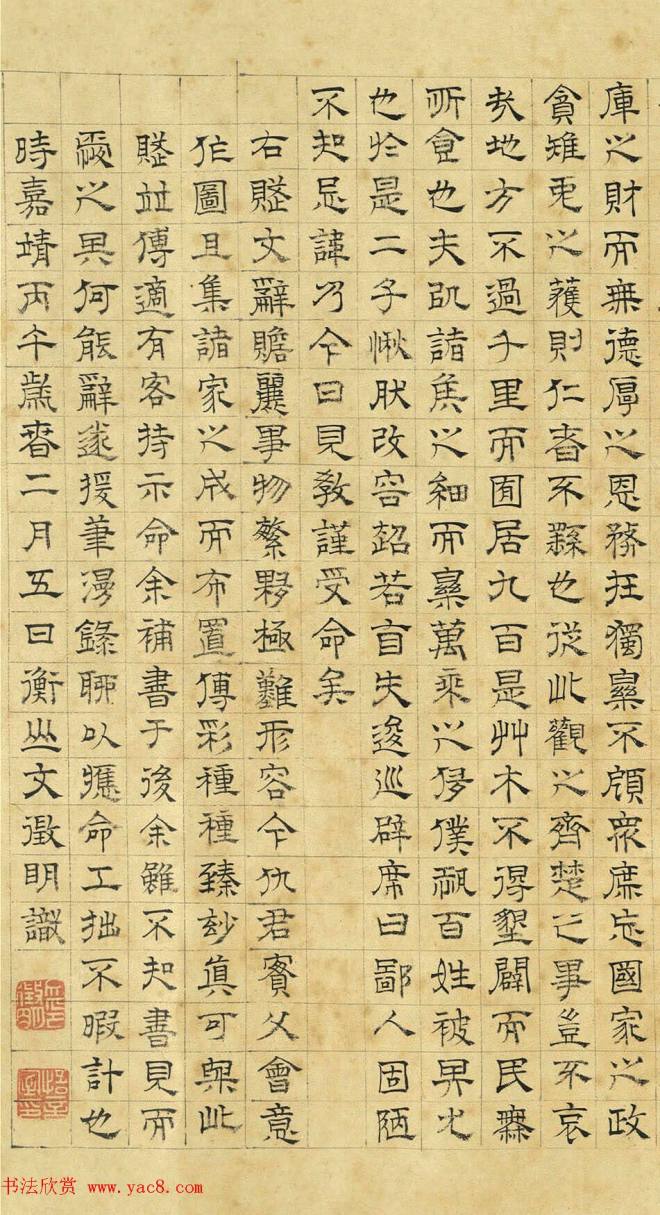 庫之財而無德厚之恩務在獨樂不顧衆庶忘國家之政
貪雉兔之獲則仁者不繇也從此觀之齊楚之事豈不哀
哉地方不過千里而囿居九百是艸木不得墾闢而民無
所食也夫以諸侯之細而樂萬乘之侈僕恐百姓被其尤
也於是二子愀肰改容超若自失逡巡辟席曰鄙人固陋
不知忌諱乃今日見教謹受命矣
右賦文辭贍麗事物繁夥極難形容今仇君實父會意
作圖且集諸家之成而布置傅彩種種臻玅真可與此
賦並傳適有客持示命余補書于後余雖不知書見而
愛之其何能辭遂援筆漫錄聊以應命工拙不暇計也
時嘉靖丙午歲春二月五日衡山文徵明識
书法欣赏 www.yac8.com